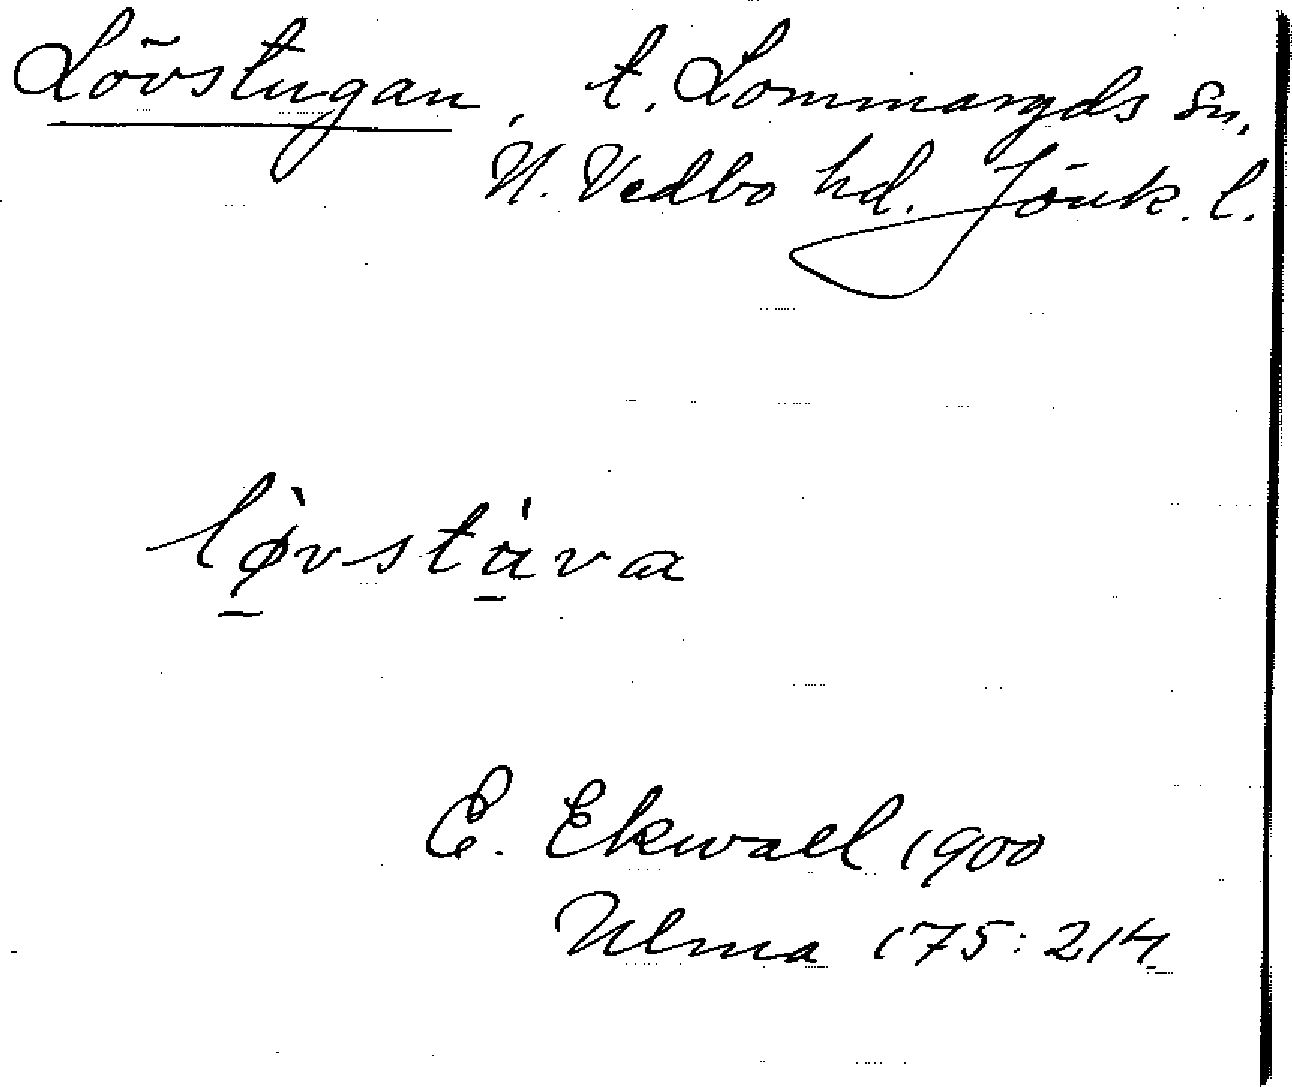 Lövstugan, t. Lommaryds sn.
N. Vedbo hd. Jönk. l.
lø̱̀vstὰ̱va
E. Ekwall 1900
Ulma 175:214